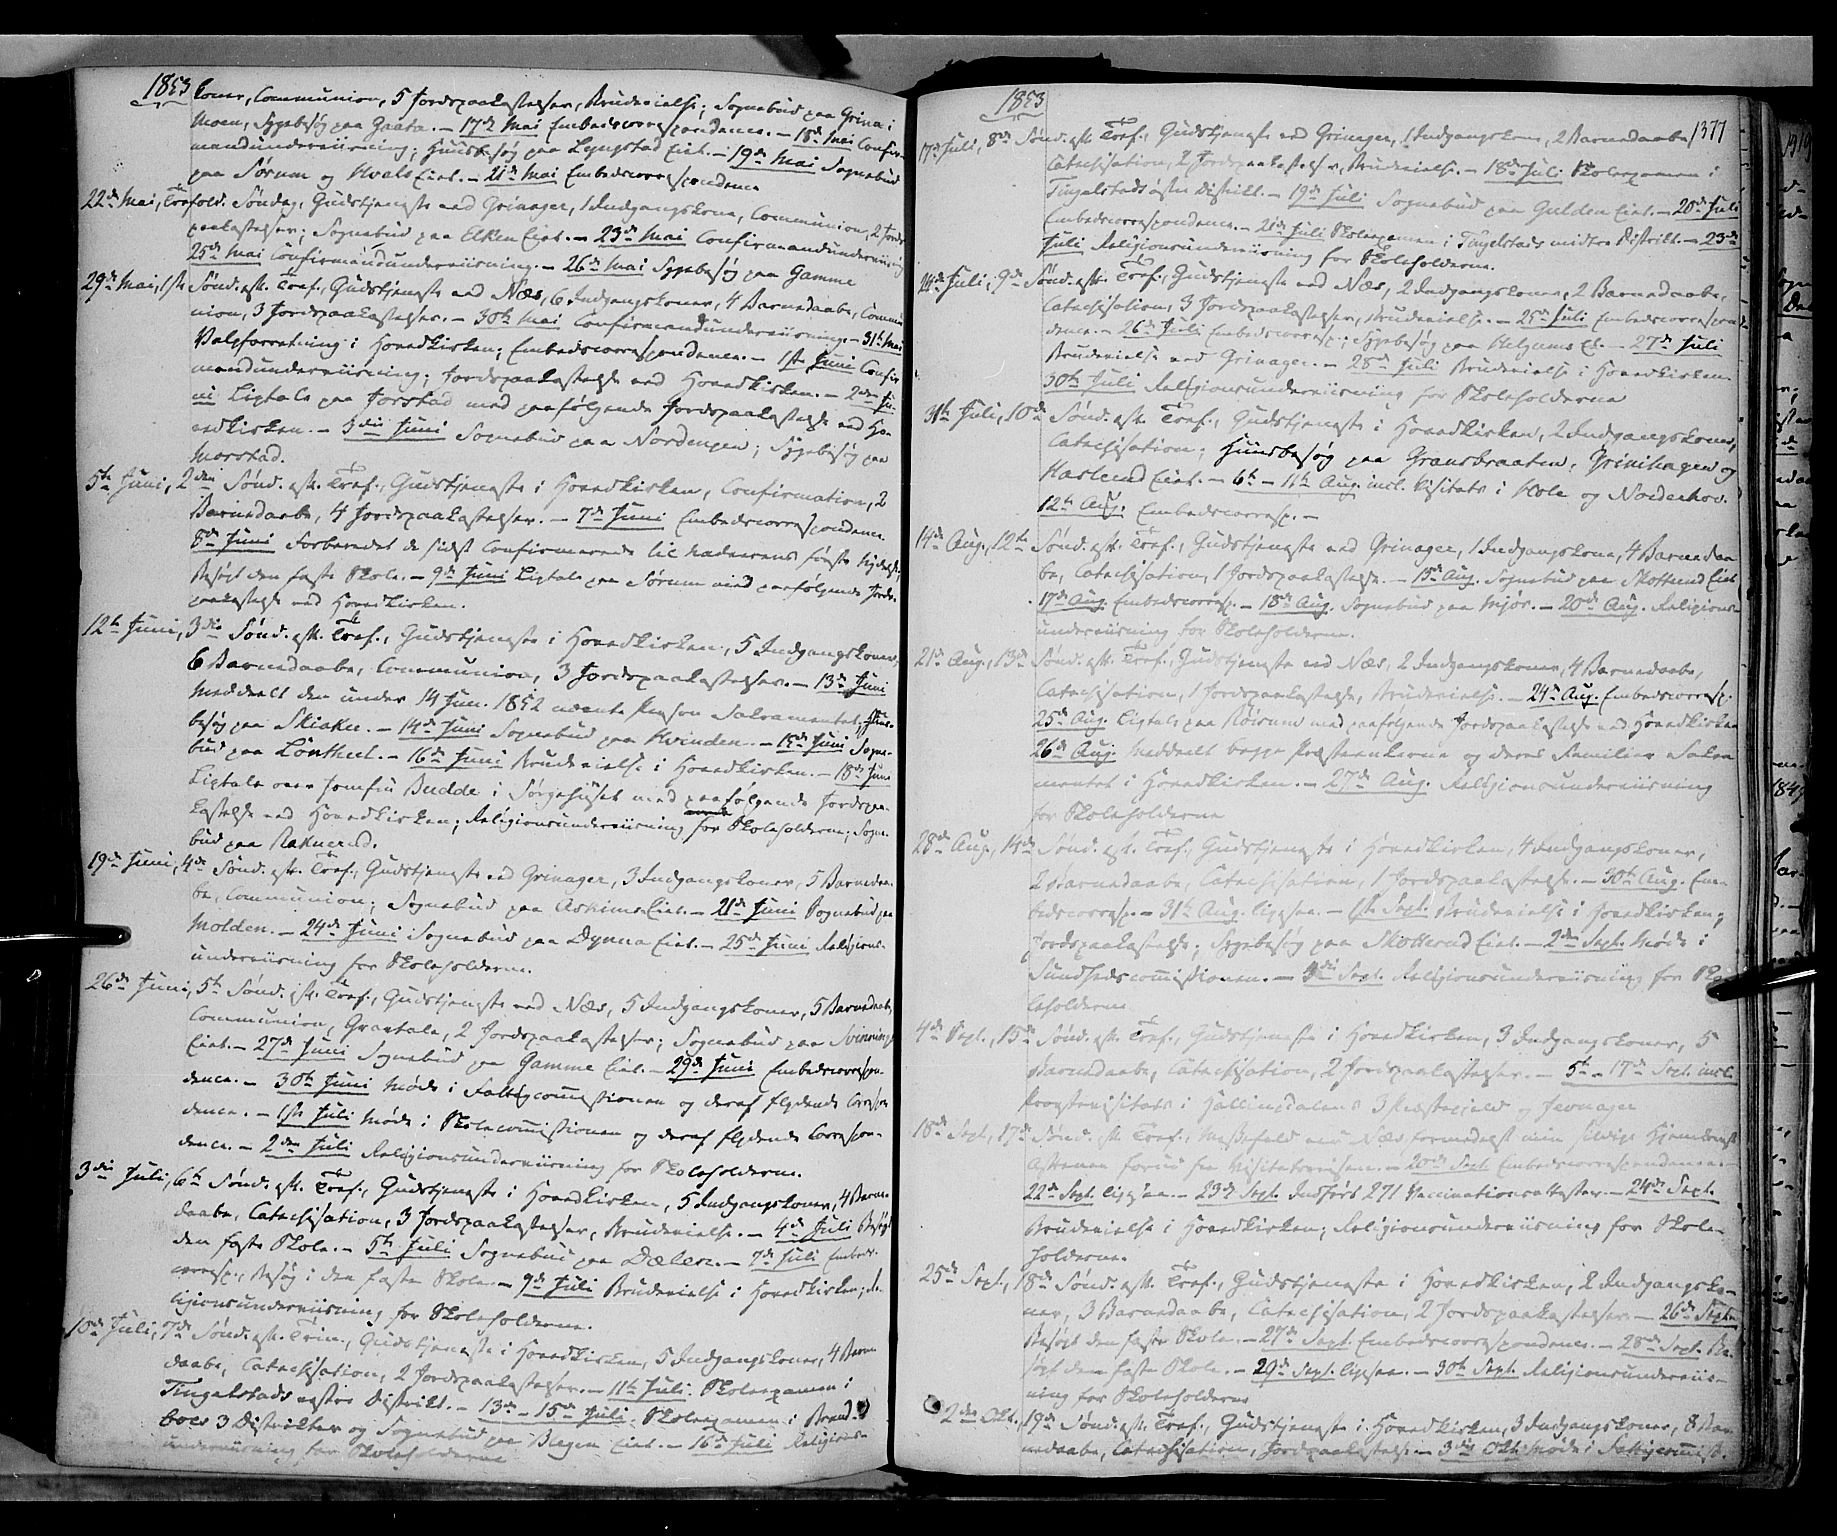 1853
koner, Communion, 5 Jordspaakastelser, Brudevielse; Sognebud paa Grina i
Moen, Sygebesøg paa Gaata. – 17de Mai Embedscorrespondence. – 18de Mai Confir-
mandunderviisning; Huusbesøg paa Lyngstad Eiet. – 19de Mai Sognebud
paa Sørum og Hvals Eiet. – 21de Mai Embedscorrespondence
22de Mai, Trefold. Søndag, Gudstjeneste ved Grinager, 1 Indgangskone, Communion, 2 Jords-
paakastelser; Sognebud paa Elken Eiet. – 23de Mai Confirmandunderviisning
25de Mai Confirmandunderviisning. – 26de Mai Sygebesøg paa Gamme
29de Mai, 1ste Sønd. eft. Tref., Gudstjeneste ved Næs, 6 Indgangskoner, 4 Barnedaabe, Commu-
nion, 3 Jordspaakastelser. – 30te Mai Confirmandunderviisning. – 31te Mai
Valgforretning i Hovedkirken; Embedscorrespondence. – 1ste Juni Confir-
mandunderviisning; Jordspaakastelse ved Hovedkirken. – 2den Ju-
ni Ligtale paa Jorstad med paafølgende Jordspaakastelse ved Ho-
vedkirken. – 3die Juni Sognebud paa Nordengen; Sygebesøg paa
Morstad.
5te Juni, 2den Sønd. eft. Tref., Gudstjeneste i Hovedkirken, Confirmation, 2
Barnedaabe, 4 Jordspaakastelser. – 7de Juni Embedscorrespondence
8de Juni Forberedet de sidst Confirmerede til Nadverens første Nydelse;
Besøgt den faste Skole. – 9de Juni Ligtale paa Sørum med paafølgende Jords-
paakastelse ved Hovedkirken.
12te Juni, 3die Sønd. eft. Tref., Gudstjeneste i Hovedkirken, 5 Indgangskoner,
6 Barnedaabe, Communion, 3 Jordspaakastelser. – 13de Juni
Meddeelt den under 14 Jun. 1852 nævnte Person Sakramentet; Huus-
besøg paa Skiaker. – 14de Juni Sognebud paa Kvinden. – 15de Juni Sogne-
bud paa Løntheet. – 16de Juni Brudevielse i Hovedkirken. – 18de Juni
Ligtale over Jomfru Budde i Sørgehuset med paafølgende Jordspaa-
kastelse ved Hovedkirken; Religionsunderviisning for Skoleholderne; Sogne-
bud paa Raknerud.
19de Juni, 4de Sønd. eft. Tref., Gudstjeneste ved Grinager, 3 Indgangskoner, 5 Barnedaa-
be, Communion; Sognebud paa Askims Eiet. – 21de Juni Sognebud paa
Molden. – 24de Juni Sognebud paa Dynna Eiet. – 25de Juni Religions-
underviisning for Skoleholderne.
26de Juni, 5te Sønd. eft. Tref., Gudstjeneste ved Næs, 5 Indgangskoner, 5 Barnedaabe,
Communion, Gravtale, 2 Jordspaakastelser; Sognebud paa Svinnings
Eiet. – 27de Juni Sognebud paa Gamme Eiet. – 29de Juni Embedscorrespon-
dence. – 30te Juni Møde i Fattigcommissionen og deraf flydende Correspon-
dence. – 1ste Juli Møde i Skolecommissionen og deraf flydende Correspon-
dence. – 2den Juli Religionsunderviisning for Skoleholderne.
3die Juli, 6te Sønd. eft. Tref., Gudstjeneste i Hovedkirken, 5 Indgangskoner, 4 Barne-
daabe, Catechisation, 3 Jordspaakastelser, Brudevielse. – 4de Juli Besøgt
den faste Skole. – 5te Juli Sognebud paa Dælen. – 7de Juli Embeds-
corresp., Besøg i den faste Skole. – 9de Juli Brudevielse i Hovedkirken; Re-
ligionsunderviisning for Skoleholderne.
10de Juli, 7de Sønd. eft. Trin., Gudstjeneste i Hovedkirken, 5 Indgangskoner, 4 Barne-
daabe, Catechisation, 2 Jordspaakastelser. – 11te Juli Skoleexamen i
Tingelstads vestre Distrikt. – 13de – 15de Juli Skoleexamen i Brand-
boes 3 Distrikter og Sognebud paa Bergen Eiet. – 16de Juli Religions-
underviisning for Skoleholderne
1853
1377
17de Juli, 8de Sønd. eft. Tref., Gudstjeneste ved Grinager, 1 Indgangskone, 2 Barnedaabe,
Catechisation, 2 Jordspaakastelser, Brudevielse. – 18de Juli Skoleexamen i
Tingelstads østre Distrikt. – 19de Juli Sognebud paa Gulden Eiet. – 20de Juli
Embedscorrespondence. – 21de Juli Skoleexamen i Tingelstads midtre Distrikt. – 23de
Juli Religionsunderviisning for Skoleholderne.
24de Juli, 9de Sønd. eft. Tref., Gudstjeneste ved Næs, 2 Indgangskoner, 2 Barnedaabe,
Catechisation, 3 Jordspaakastelser, Brudevielse. – 25de Juli Embedscorrespon-
dence. – 26de Juli Embedscorresp.; Sygebesøg paa Helgums E. – 27de Juli
Brudevielse ved Grinager. – 28de Juli Brudevielse i Hovedkirken.
30te Juli Religionsunderviisning for Skoleholderne
31te Juli, 10de Sønd. eft. Tref., Gudstjeneste i Hovedkirken, 2 Indgangskoner,
Catechisation; Huusbesøg paa Gransbraaten, Grinihagen og
Hasleend Eiet. – 6te – 11te Aug. incl. Visitats i Hole og Norderhov.
12te Aug. Embedscorresp. –
14de Aug., 12te Sønd. eft. Tref., Gudstjeneste ved Grinager, 1 Indgangskone, 4 Barnedaa-
be, Catechisation, 1 Jordspaakastelse. – 15de Aug. Sognebud paa Skotterud Eiet
17de Aug. Embedscorresp. – 18de Aug. Sognebud paa Mjør. – 20de Aug. Religions-
underviisning for Skoleholderne.
21de Aug., 13de Sønd. eft. Tref., Gudstjeneste ved Næs, 2 Indgangskoner, 4 Barnedaabe,
Catechisation, 1 Jordspaakastelse, Brudevielse. – 24de Aug. Embedscorresp.
25de Aug. Ligtale paa Røisum med paafølgende Jordspaakastelse ved Hovedkirken
26de Aug. Meddeelt begge Præsteenkerne og deres Familier Sakra-
mentet i Hovedkirken. – 27de Aug. Religionsunderviisning
for Skoleholderne
28de Aug., 14de Sønd. eft. Tref., Gudstjeneste i Hovedkirken, 4 Indgangskoner,
2 Barnedaabe, Catechisation, 1 Jordspaakastelse. – 30te Aug. Em-
bedscorresp. – 31te Aug. ligesaa. – 1ste Sept. Brudevielse i Hovedkirken;
Jordspaakastelse; Sygebesøg paa Skotterud Eiet. – 2den Sept. Møde i
Sundhedscommissionen. – 3die Sept. Religionsunderviisning for Sko-
leholderne
4de Sept., 15de Sønd. eft. Tref., Gudstjeneste i Hovedkirken, 3 Indgangskoner, 5
Barnedaabe, Catechisation, 2 Jordspaakastelser. – 5te – 17de Sept. incl.
Provstevisitats i Hallingdalens 3 Præstegjeld og Jevnager
18de Sept., 17de Sønd. eft. Tref., Messefald ved Næs, formedelst min silvige Hjemkomst
Aftenen forud fra Visitatsreisen. – 20de Sept. Embedscorrespondence. –
22de Sept. ligesaa. – 23de Sept. Indført 271 Vaccinationsattester. – 24de Sept.
Brudevielse i Hovedkirken; Religionsunderviisning for Skole-
holderne.
25de Sept., 18de Sønd. eft. Tref., Gudstjeneste i Hovedkirken, 2 Indgangsko-
ner, 3 Barnedaabe, Catechisation, 2 Jordspaakastelser. – 26de Sept.
Besøgt den faste Skole. – 27de Sept. Embedscorrespondence. – 28de Sept. Be-
søgt den faste Skole. – 29de Sept. ligesaa. – 30te Sept. Religionsunderviis-
ning for Skoleholderne
2den Okt., 19de Sønd. eft. Tref., Gudstjeneste i Hovedkirken, 3 Indgangskoner, 8 Bar-
nedaabe, Catechisation, Jordspaakastelse. – 3die Okt. Møde i Fattigcommiss.